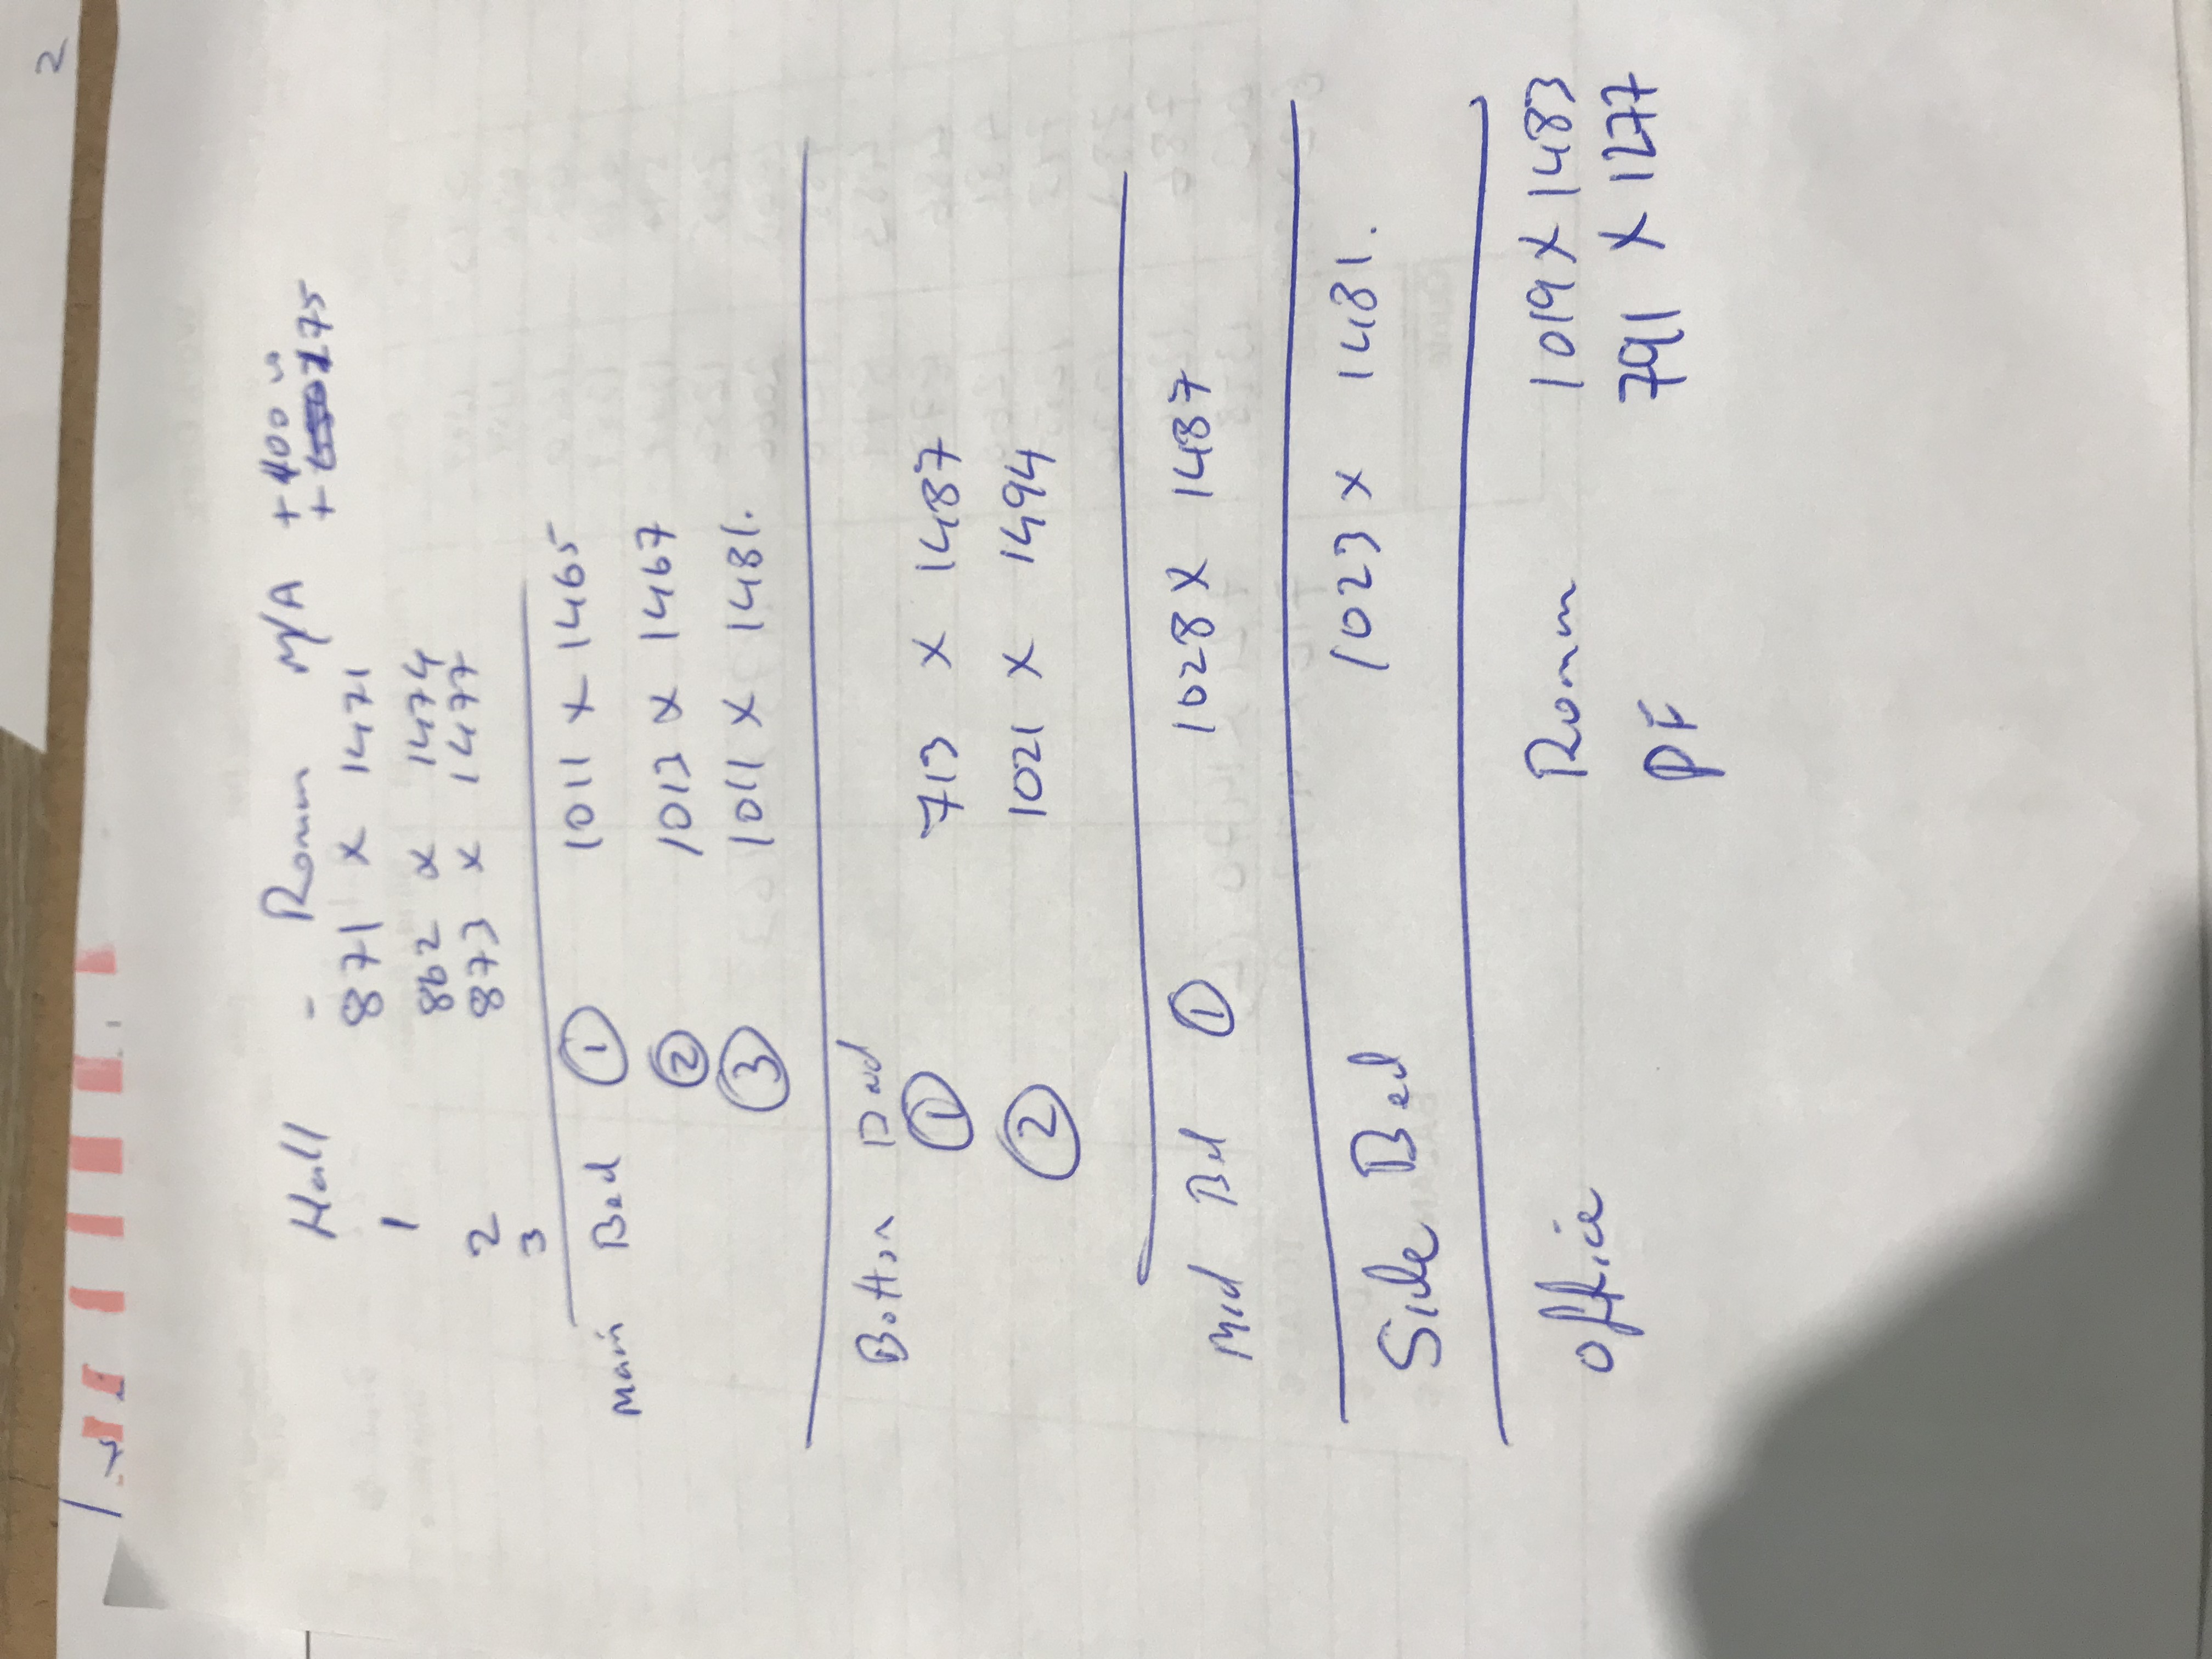 2
Hall - Roman M/A + 100 w
+ 175
1 871 x 1471
2 862 x 1474
3 873 x 1477
main Bed 1 1011 x 1465
2 1013 x 1467
3 1011 x 1481.
Bottom Bed
1 713 x 1487
2 1021 x 1494
Mid Bed 1 1028 x 1487
Side Bed 1023 x 1481.
office Roman 1019 x 1483
PF 791 x 1277